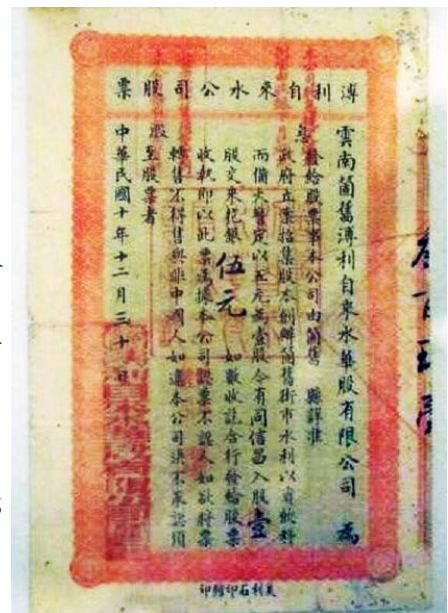 溥利自來水公司股票
雲南箇舊溥利自來水華股有限公司 為
發給股票事本公司由箇舊 縣詳准
政府立案招集股本創辦箇舊街市水利以資飲料
而備火警定以五元為壹股今有同信昌入股壹
股交來花銀伍元 如數收訖合行發給股票
收執即以此票為據本公司認票不認人如欲將票
轉售不得售與非中國人如違本公司決不承認須
至股票者
中華民國十年十二月三十日
美利石印館印